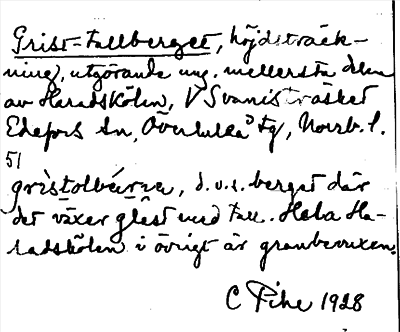 Grist-tallberget, höjdsträck-
ning, utgörande ung. mellersta delen
av Haradskölen, V Svanisträsket
Edefors sn, Överluleå tg, Norrb. l.
51
gristolbárɛn, d.v.s. berget där
det växer glest med tall. Hela Ha-
radskölen i övrigt är granbevuxen.
C Pihe 1928